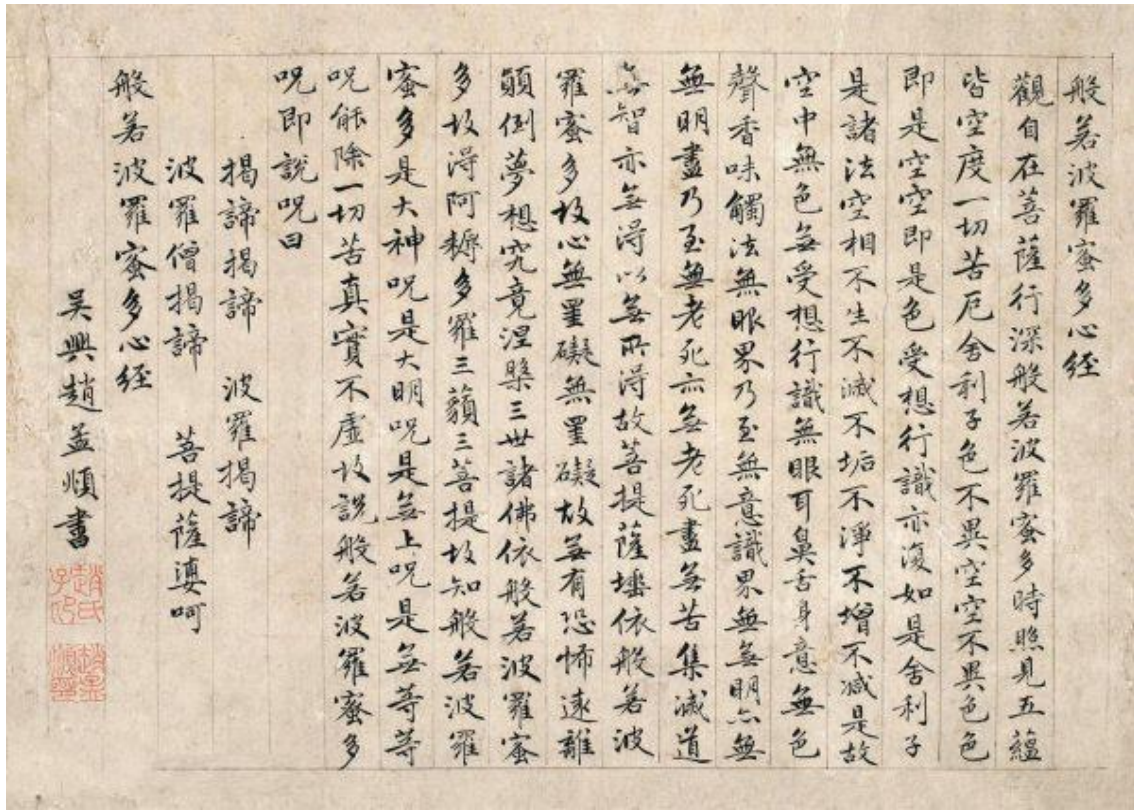 般若波羅蜜多心經
觀自在菩薩行深般若波羅蜜多時照見五蘊
皆空度一切苦厄舍利子色不異空空不異色色
即是空空即是色受想行識亦復如是舍利子
是諸法空相不生不滅不垢不淨不增不減是故
空中無色無受想行識無眼耳鼻舌身意無色
聲香味觸法無眼界乃至無意識界無無明亦無
無明盡乃至無老死亦無老死盡無苦集滅道
無智亦無得以無所得故菩提薩埵依般若波
羅蜜多故心無罣礙無罣礙故無有恐怖遠離
顛倒夢想究竟涅槃三世諸佛依般若波羅蜜
多故得阿耨多羅三藐三菩提故知般若波羅
蜜多是大神呪是大明呪是無上呪是無等等
呪能除一切苦真實不虛故說般若波羅蜜多
呪即說呪曰
揭諦揭諦 波羅揭諦
波羅僧揭諦 菩提薩婆呵
般若波羅蜜多心經
吳興趙孟順書